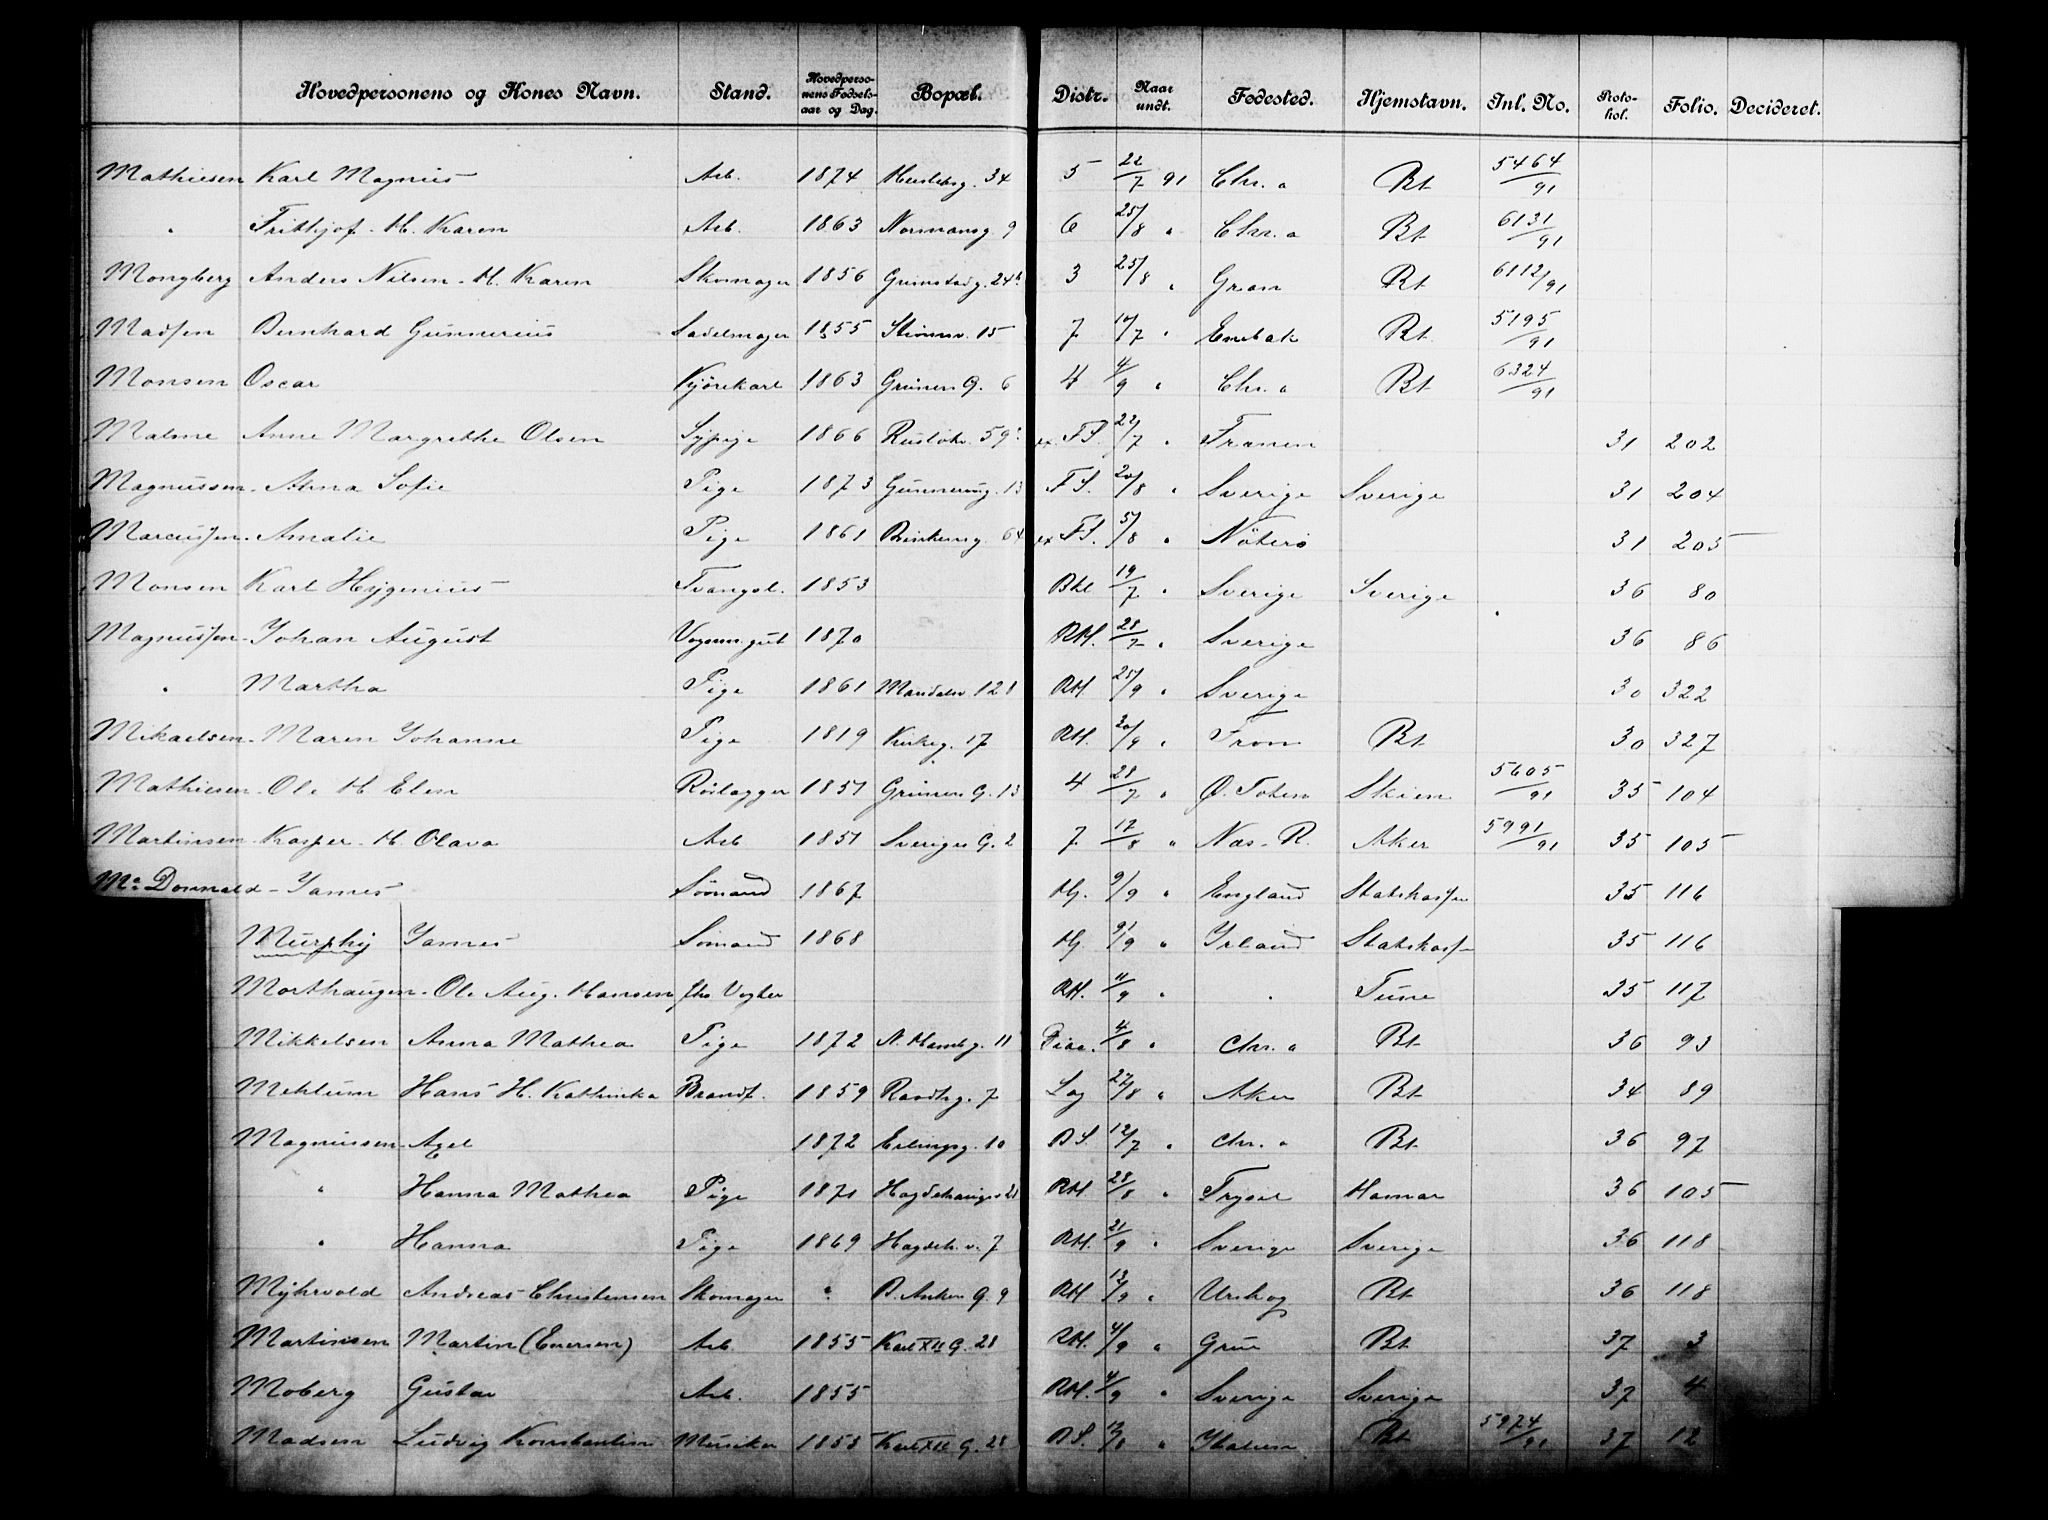 Hovedpersonens og Kones Navn. Stand. Hovedpersonens Fødselsaar og Dag. Bopæl. Distr. Naar undt. Fødested. Hjemstavn. Inl. No. Protokol. Folio. Decideret.
Mathiesen Karl Magnus Arb. 1874 34 5 22/7 91 Chr.a Bt 5464/91
" Frithjof - H. Karen Arb. 1863 Normansg. 9 6 25/8 " Chr.a Bt 6131/91
Mongberg Anders Nilsen - H. Karen Skomager 1856 Grimstadg. 24b 3 25/8 " Gran Bt 6112/91
Madsen Bernhard Gunnerius Sadelmager 1855 Strømsv. 15 7 10/7 " Enebak Bt 5195/91
Monsen Oscar Kjørekarl 1863 Grüners G. 6 4 4/9 " Chr.a Bt 6324/91
Malme Anne Margrethe Olsen Sypige 1866 59 ex. F.S. 22/7 " Franen 31 202
Magnussen - Anna Sofie Pige 1873 Gunnerusg. 13 F.S. 20/8 " Sverige Sverige 31 204
Marcussen - Amalie Pige 1861 Brinkeng. 64 ex F.S. 5/8 " Nøterø 31 205
Monsen Karl Hygenius Tvangsl. 1853 Bkl 19/7 " Sverige Sverige 36 80
Magnussen - Johan August Vognm.gut 1870 RH. 28/7 " Sverige 36 86
" Martha Pige 1861 Mandalsv. 12 RH. 25/9 " Sverige 30 322
Mikaelsen - Maren Johanne Pige 1819 Kirkeg. 17 RH. 20/9 " Tron Bt 30 327
Mathiesen - Ole H Elen Rørlægger 1851 Grüners G. 13 4 28/7 " Ø. Toten Skien 5605/91 35 104
Martinsen - Kasper - H. Olava Arb 1851 Sveriges G. 2 7 17/8 " Næs - R. Aker 5991/91 35 105
Mc Donnald - James Sømand 1867 Hj. 9/9 " England Statskassen 35 116
Murphy James Sømand 1868 Hj 9/9 " Irland Statskass 35 116
Morthaugen - Ole Aug. Hansen fhv. Vogter RH. 11/9 " " Tune 35 117
Mikkelsen Anna Mathea Pige 1872 N. Hambg. 11 Diac. 4/8 " Chr.a Bt 36 93
Mehlum Hans H. Kathinka Brandf. 1859 Raadhg. 7 Log 27/8 " Aker Bt 34 89
Magnussen - Axel 1872 Erlingsg. 10 B.S. 12/7 " Chr.a Bt 36 97
" Hanna Mathea Pige 1871 Hagdehaugsv 21 RH 28/8 " Trysil Hamar 36 105
" Hanna Pige 1869 Hagdeh.v. 7 RH. 21/9 " Sverige Sverige 36 118
Myhrvold Andreas Christensen Skomager " B. Ankers G. 9 RH 13/9 " Urskog Bt 36 118
Martinsen Martin (Enersen) Arb. 1855 Karl XII G. 28 RH. 4/9 " Grue Bt 37 3
Moberg Gustav Arb. 1855 RH. 4/9 " Sverige Sverige 37 4
Madsen Ludvig Konstantin Musiker 1855 Karl XII G. 28 B.S. " Italien Bt 5974/91 37 12